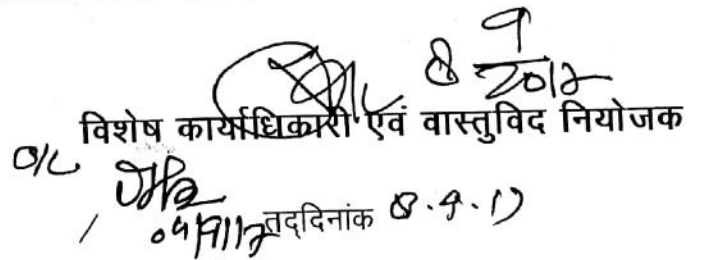 8 9/2017
विशेष कार्याधिकारी एवं वास्तुविद नियोजक
O/C
तद्दिनांक 8.9.17